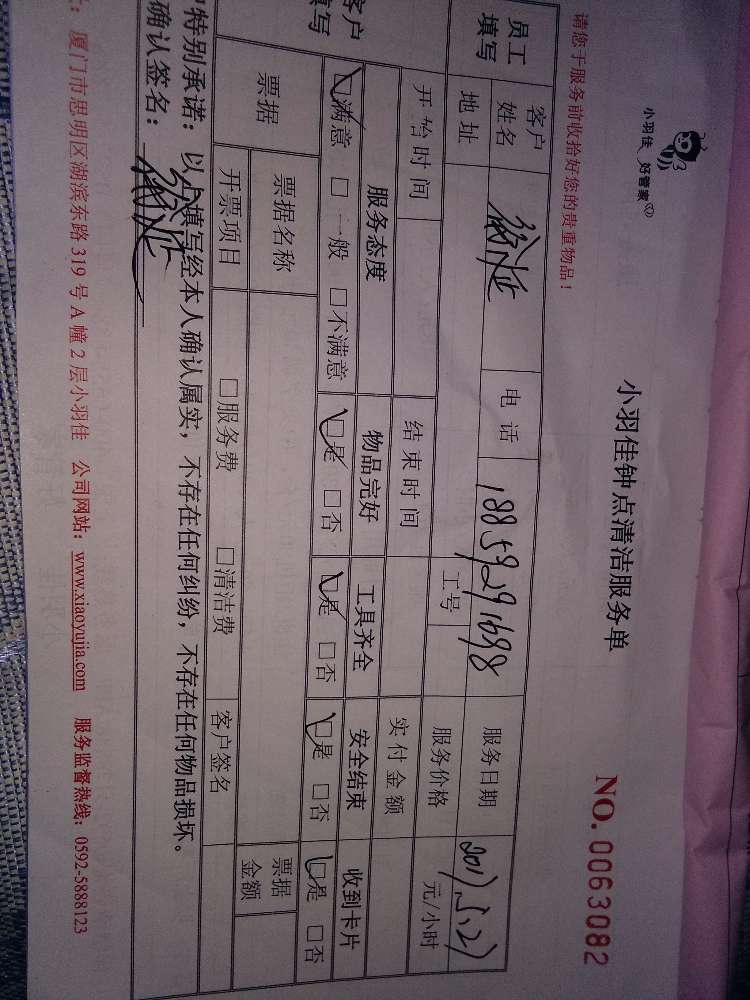 小羽佳 好管家
小羽佳钟点清洁服务单
NO. 0063082
请您于服务前收拾好您的贵重物品！
员工填写 客户姓名 电话 18859291698 服务日期 2017.5.27
地址 工号 服务价格 元/小时
开始时间 结束时间 实付金额
客户填写 服务态度 物品完好 工具齐全 安全结束 收到卡片
☑满意 □一般 □不满意 ☑是 □否 ☑是 □否 ☑是 □否 ☑是 □否
票据 票据名称 票据金额
开票项目 □服务费 □清洁费 客户签名
特别承诺：以上填写经本人确认属实，不存在任何纠纷，不存在任何物品损坏。
确认签名：
厦门市思明区湖滨东路 319 号 A 幢 2 层小羽佳 公司网站：www.xiaoyujia.com 服务监督热线：0592-5888123